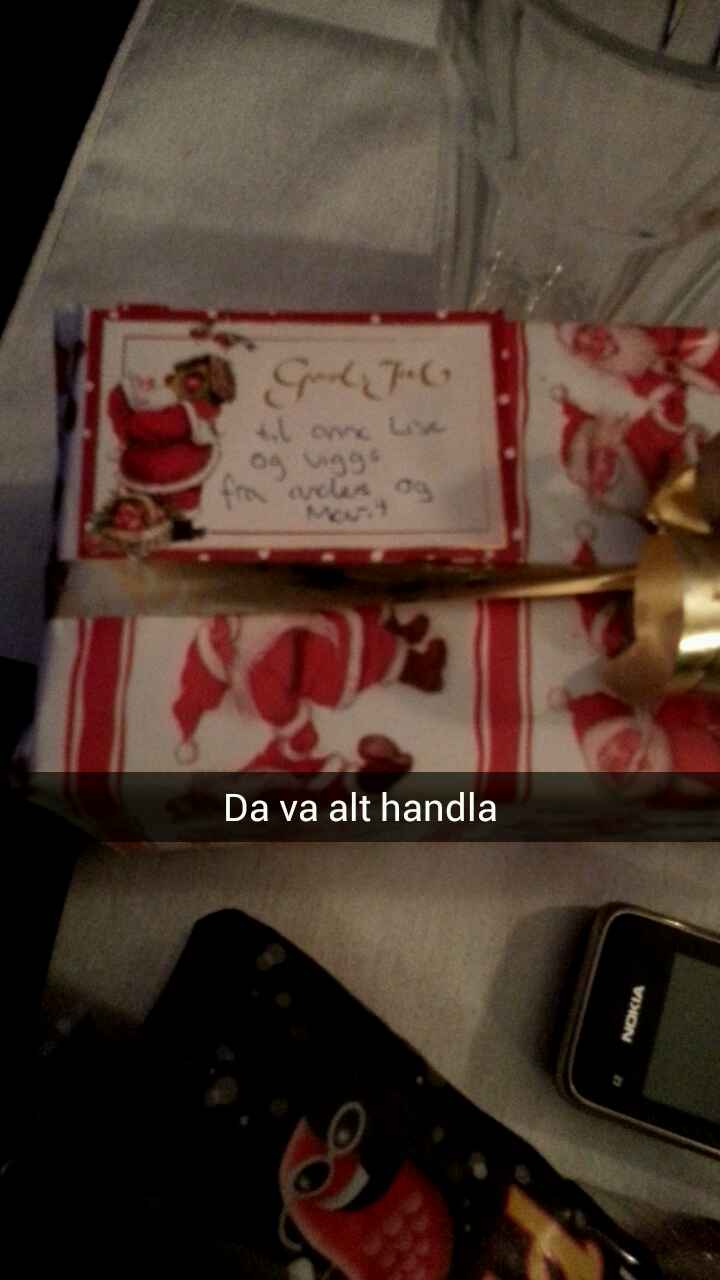 God Jul
til anne Lise
og viggo
fra anders og
Da va alt handla
NOKIA